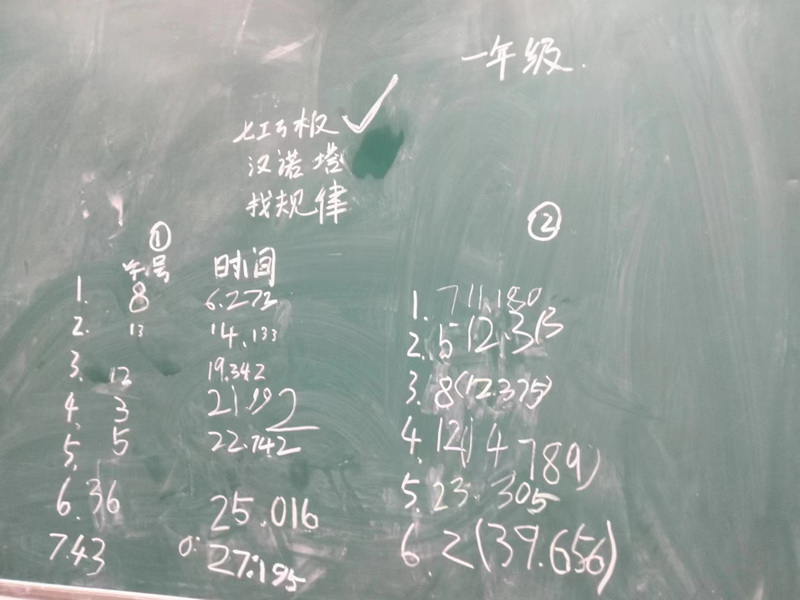 一年级.
七巧板 ✓
汉诺塔
找规律
①
学号 时间
1. 8 6.273
2. 13 14.133
3. 12 19.342
4. 3 21.992
5. 5 22.742
6. 36 25.016
7.43 0:27:195
②
1. 7 11.180
2. 5 12.313
3. 8(12.375)
4. 12(14.789)
5. 23.305
6. 2(39.656)